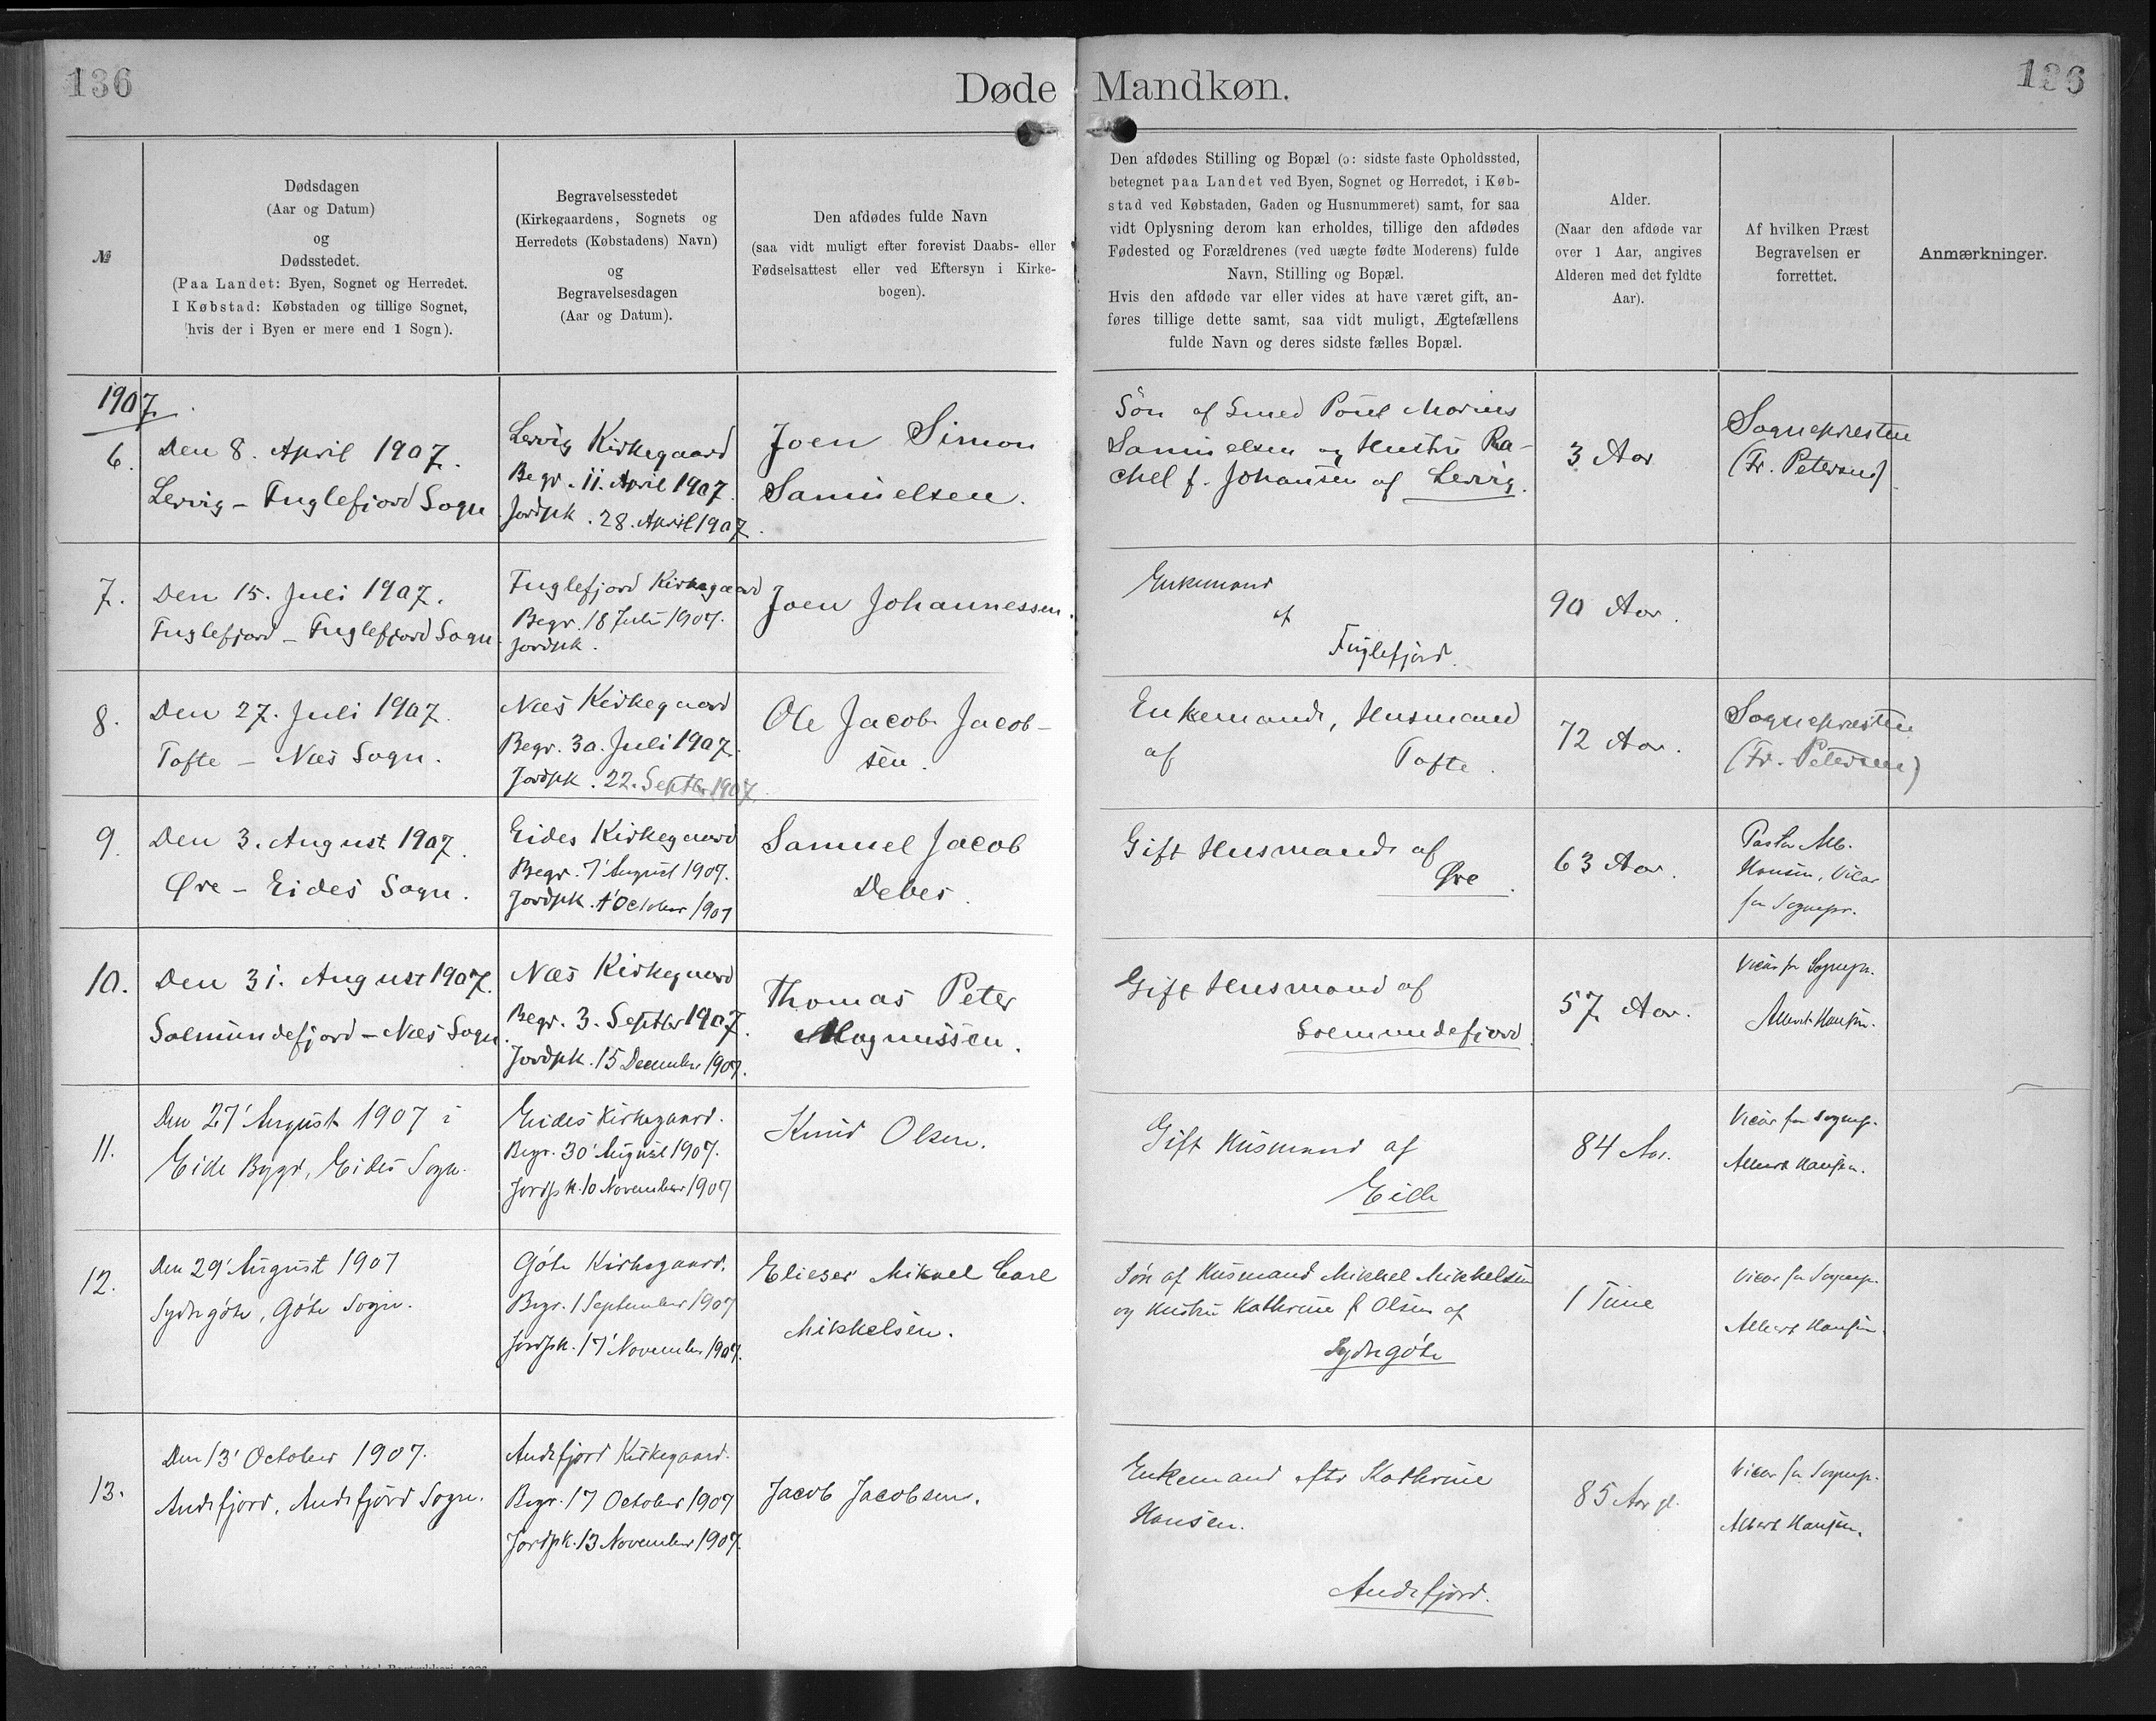 136
Døde Mandkøn.
136
№
Dødsdagen
(Aar og Datum)
og
Dødsstedet.
(Paa Landet: Byen, Sognet og Herredet.
I Købstad: Købstaden og tillige Sognet,
hvis der i Byen er mere end 1 Sogn).
Begravelsesstedet
(Kirkegaardens, Sognets og
Herredets (Købstadens) Navn)
og
Begravelsesdagen
(Aar og Datum).
Den afdødes fulde Navn
(saa vidt muligt efter forevist Daabs- eller
Fødselsattest eller ved Eftersyn i Kirke-
bogen).
Den afdødes Stilling og Bopæl (ɔ: sidste faste Opholdssted,
betegnet paa Landet ved Byen, Sognet og Herredet, i Køb-
stad ved Købstaden, Gaden og Husnummeret) samt, for saa
vidt Oplysning derom kan erholdes, tillige den afdødes
Fødested og Forældrenes (ved uægte fødte Moderens) fulde
Navn, Stilling og Bopæl.
Hvis den afdøde var eller vides at have været gift, an-
føres tillige dette samt, saa vidt muligt, Ægtefællens
fulde Navn og deres sidste fælles Bopæl.
Alder.
(Naar den afdøde var
over 1 Aar, angives
Alderen med det fyldte
Aar).
Af hvilken Præst
Begravelsen er
forrettet.
Anmærkninger.
1907
6.
Den 8. April 1907.
Lervig – Fuglefjord Sogn
Lervig Kirkegaard
Begr. 11. April 1907.
Jordpk. 28. April 1907.
Joen Simon
Samuelsen.
Søn af Smed Poul Marius
Samuelsen og Hustru Ra-
chel f. Johansen af Lervig.
3 Aar
Sognepræsten
(Fr. Petersen)
7.
Den 15. Juli 1907.
Fuglefjord – Fuglefjord Sogn.
Fuglefjord Kirkegaard
Begr. 18 Juli 1907.
Jordpk.
Joen Johannessen.
Enkemand
af
Fuglefjord.
90 Aar.
8.
Den 27. Juli 1907.
Tofte – Næs Sogn.
Næs Kirkegaard
Begr. 30. Juli 1907.
Jordpk. 22. Septbr 1907.
Ole Jacob Jacob-
sen.
Enkemand, Husmand
af Tofte.
72 Aar.
Sognepræsten
(Fr. Petersen)
9.
Den 3. August 1907.
Øre – Eides Sogn.
Eides Kirkegaard
Begr. 7' August 1907.
Jordpk. October 1907
Samuel Jacob
Debes.
Gift Husmand af
Øre.
63 Aar.
Pastor Alb.
Hansen, Vicar
for Sognepr.
10.
Den 31. August 1907.
Salmundefjord – Næs Sogn.
Næs Kirkegaard
Begr. 3. Septbr 1907.
Jordpk. 15 December 1907.
Thomas Peter
Magnussen.
Gift Husmand af
Solmundefjord.
57 Aar.
Vicar for Sognepr.
Albert Hansen.
11.
Den 27' August 1907 i
Eide Bygd, Eides Sogn.
Eides Kirkegaard.
Begr. 30' August 1907.
Jordpk. 10 November 1907
Knud Olsen.
Gift Husmand af
Eide
84 Aar.
Vicar for Sognepr.
Albert Hansen.
12.
Den 29' August 1907
Sydrgöte, Göte Sogn.
Göte Kirkegaard.
Begr. 1 September 1907
Jordpk. 17' November 1907.
Elieser Mikael Carl
Mikkelsen.
Søn af Husmand Mikkel Mikkelsen
og Hustru Kathrine f. Olsen af
Sydrgöte
1 Time
Vicar for Sognepr.
Albert Hansen.
13.
Den 13' October 1907.
Andefjord, Andefjord Sogn.
Andefjord Kirkegaard.
Begr. 17 October 1907
Jordpk. 13 November 1907.
Jacob Jacobsen.
Enkemand efter Kathrine
Hansen.
Andefjord.
85 Aar gl.
Vicar for Sognepr.
Albert Hansen.